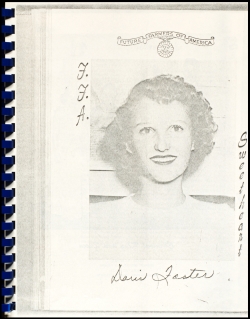 FUTURE FARMERS OF AMERICA
F.
F.
A.
Sweetheart
Doris Foster